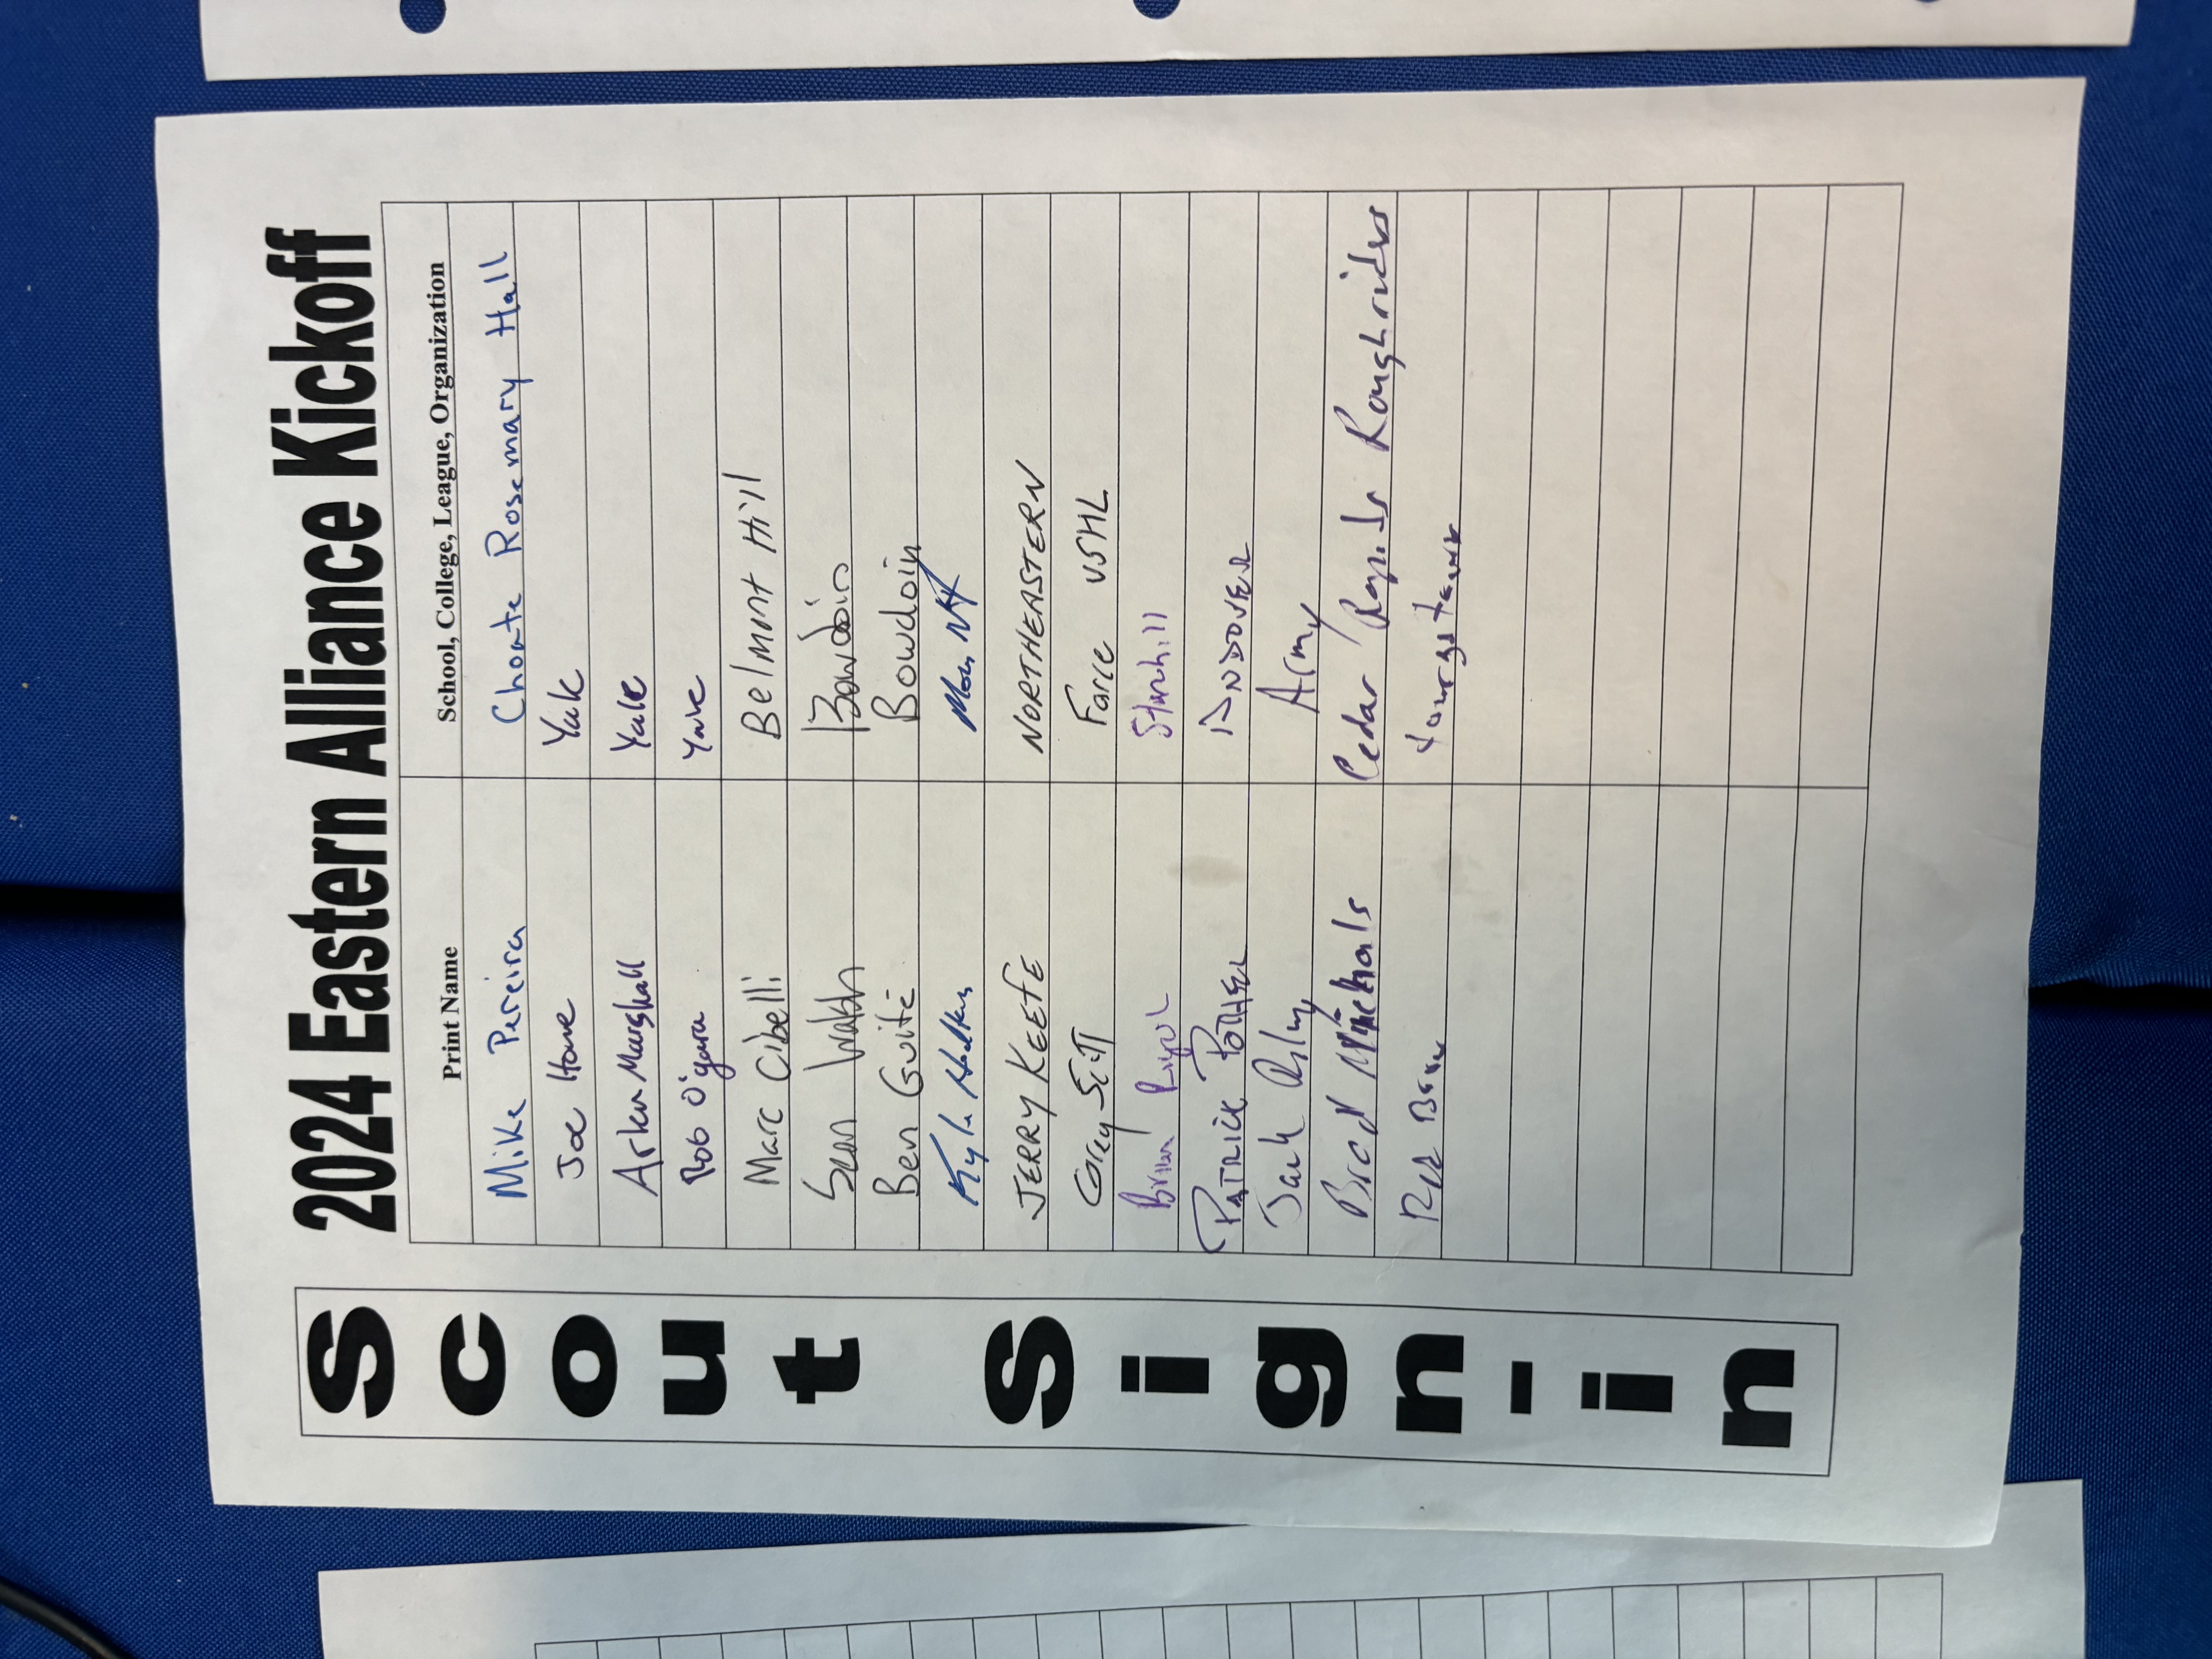 2024 Eastern Alliance Kickoff
Scout Sign-in
Print Name School, College, League, Organization
Mike Pereira Choate Rosemary Hall
Joe Howe Yale
Arken Marshall Yale
Rob O'Gara Yale
Marc Cibelli Belmont Hill
Sean Walsh Bowdoin
Ben Guité Bowdoin
Kyle
JERRY KEEFE NORTHEASTERN
Corey Scott Force USHL
Brian Stonehill
PATRICK ANDOVER
Army
Brad Cedar Rapids Roughriders
Youngstown